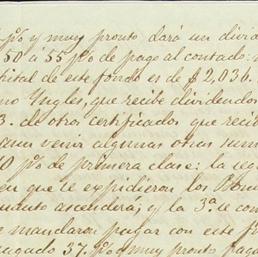 p% y muy pronto dará un divid
50 a 55 p% de pago al contado:
pital de este fondo es de $2,036.
no Yngles, que recibe dividendos
3. de otros certificados que recib
venir algunas otras sum
0 p% de primera clase: la seg
en que te expidieron los Bon
mento ascenderá; y la 3ª te con
mandaron pagar con este f
ugado 37. p% y muy pronto paga